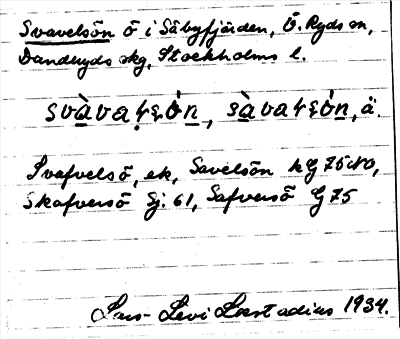 Svavelsön ö i Säbyfjärden, Ö. Ryds sn,
Danderyds skg, Stockholms l.
svàvaɬꜫȯ́n, sàvaɬꜫȯ́n, ä.
Svafvelsö, ek, Savelsön hG 75 NO,
Skafversö Sj. 61, Safversö G 75
Lars-Levi Læstadius 1934.